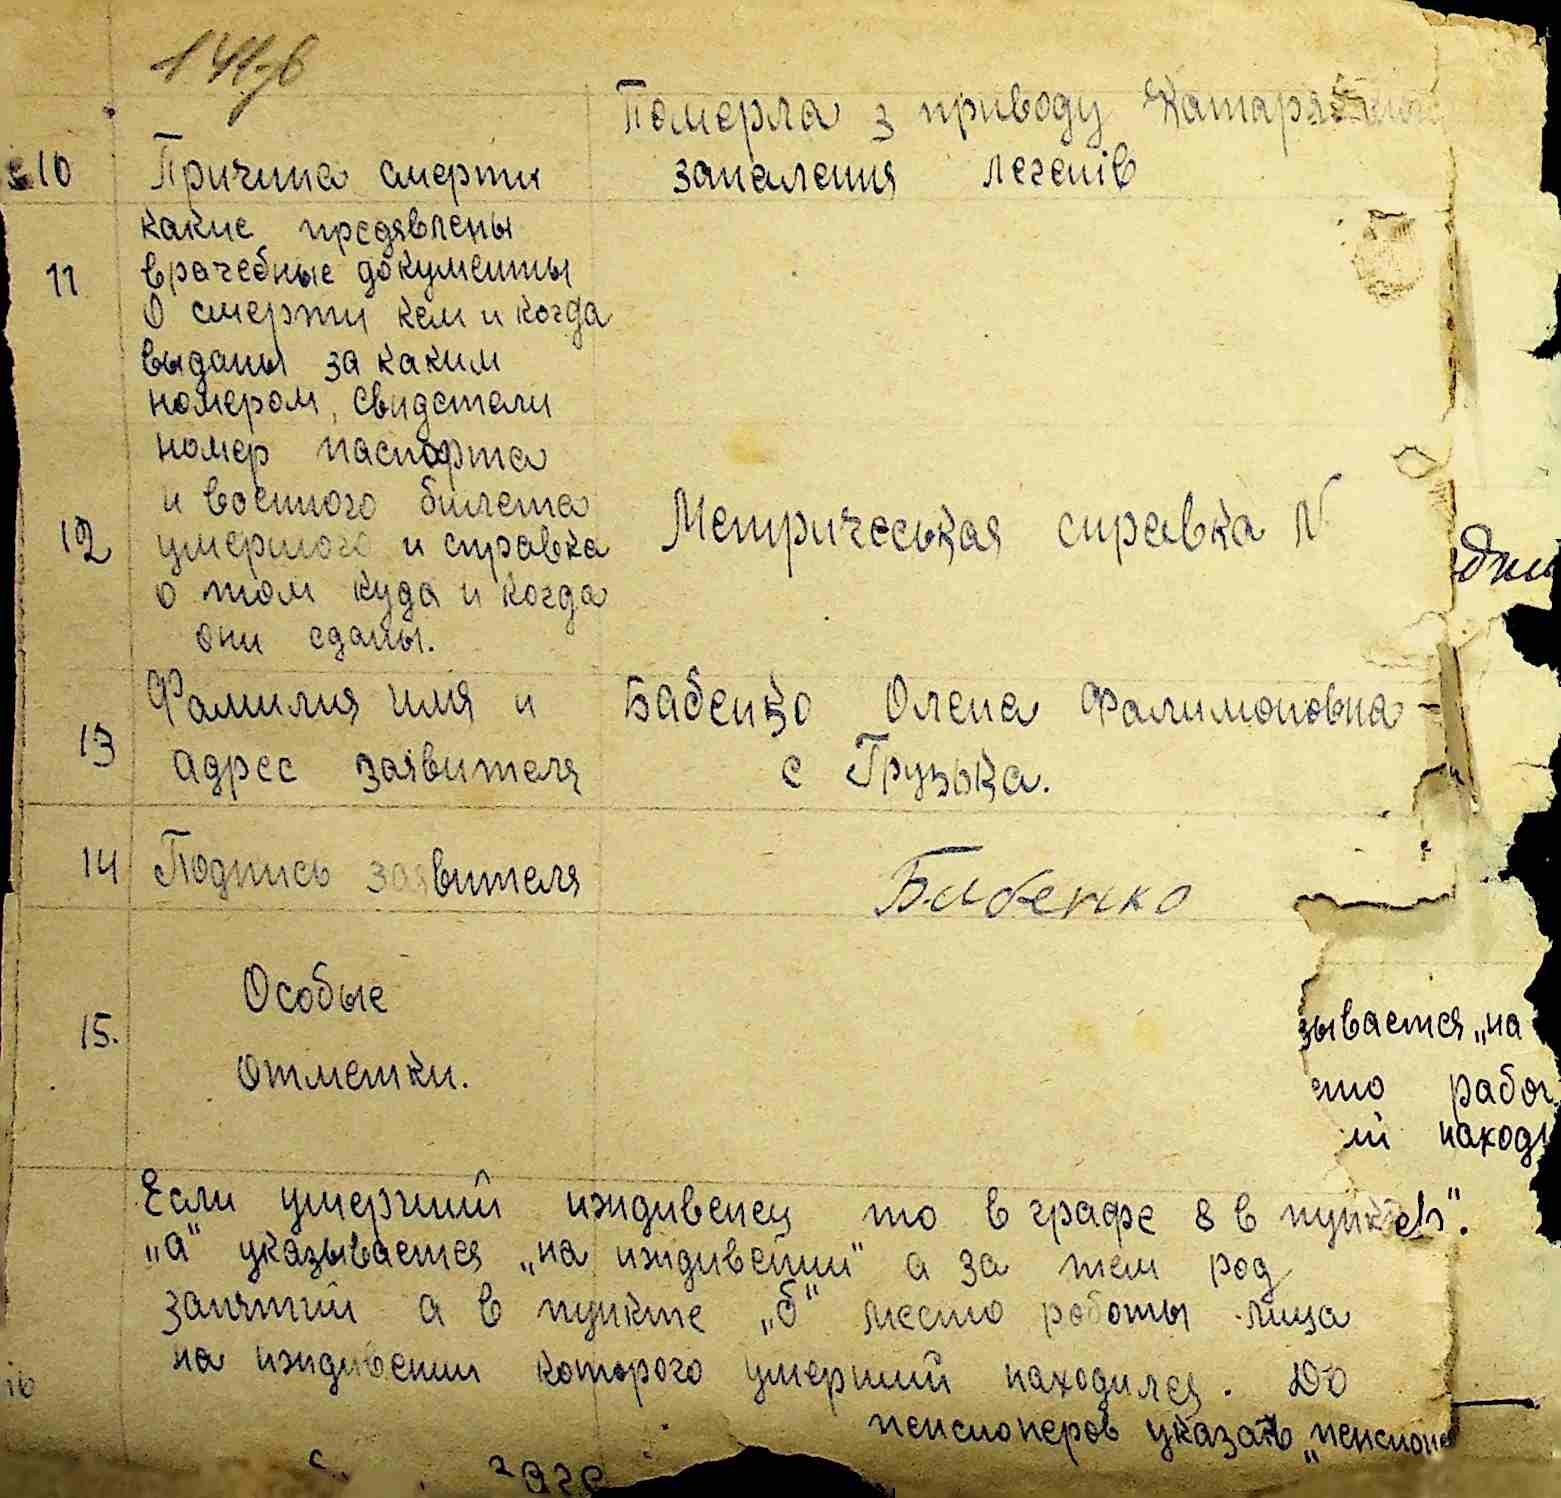 Померла з приводу
10 Причина смерти запалення легенів
какие предявлены
11 врачебные документы
о смерти кем и когда
выданы за каким
номером, свидетели
номер паспорта
и военного билета
12 умершого и справка Метрическая справка N
о том куда и когда
они сданы.
Фамилия имя и Бабенко Олена Фалимоновна
13 адрес заявителя с Грузька.
14 Подпись заявителя Бабенко
Особые
15.
зывается „на
отметки.
рабо
наход
Если умерший иждивенец то в графе 8 в пункте
„а“ указывается „на иждивении“ а за тем род
занятий а в пункте „б“ место роботы лица
на иждивении которого умерший находился. До
пенсионеров указать „пенсионе